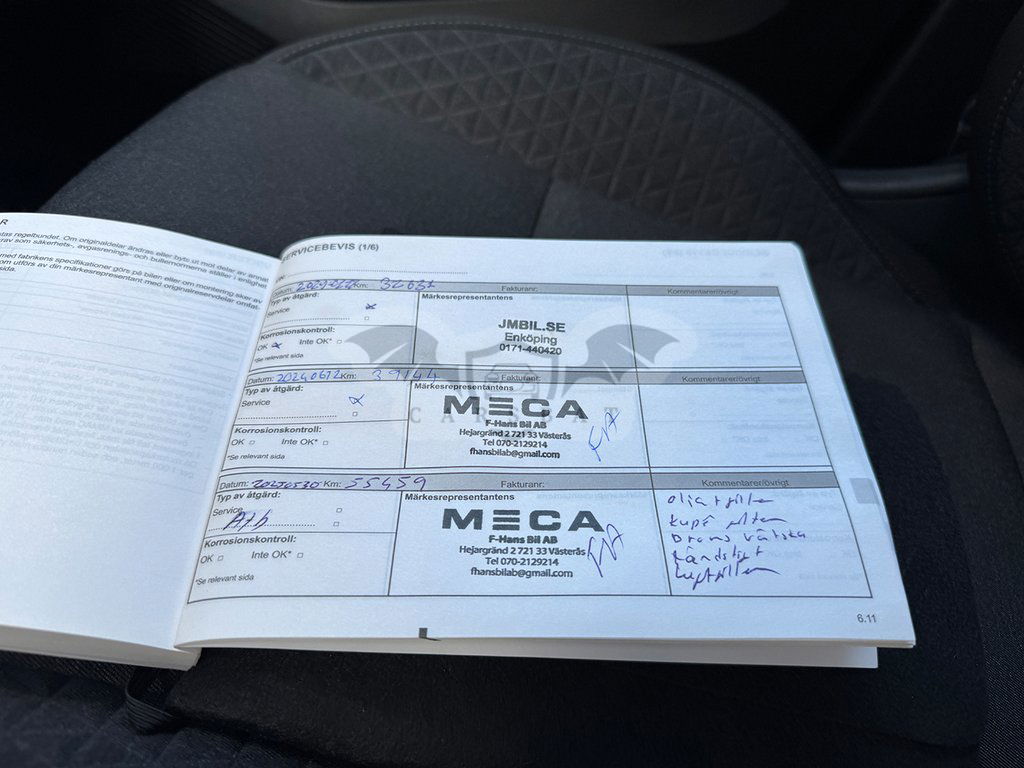 R
tas regelbundet. Om originaldelar ändras eller byts ut mot delar av annat
krav som säkerhets-, avgasrenings- och bullernormerna ställer i enlighet
med fabrikens specifikationer görs på bilen eller om montering sker av
om utförs av din märkesrepresentant med originalreservdelar omfat-
sida.
SERVICEBEVIS (1/6)
Datum: Km: Fakturanr: Kommentarer/övrigt
Typ av åtgärd:
Service
Korrosionskontroll:
OK Inte OK*
*Se relevant sida
Märkesrepresentantens
JMBIL.SE
Enköping
0171-440420
Datum: 20240612 Km: 39144 Fakturanr: Kommentarer/övrigt
Typ av åtgärd:
Service
Korrosionskontroll:
OK Inte OK*
*Se relevant sida
Märkesrepresentantens
MECA
F-Hans Bil AB
Hejargränd 2 721 33 Västerås
Tel 070-2129214
fhansbilab@gmail.com
Datum: 20250530 Km: 55459 Fakturanr: Kommentarer/övrigt
Typ av åtgärd:
Service
Korrosionskontroll:
OK Inte OK*
*Se relevant sida
Märkesrepresentantens
MECA
F-Hans Bil AB
Hejargränd 2 721 33 Västerås
Tel 070-2129214
fhansbilab@gmail.com
kupé
Broms vätska
6.11